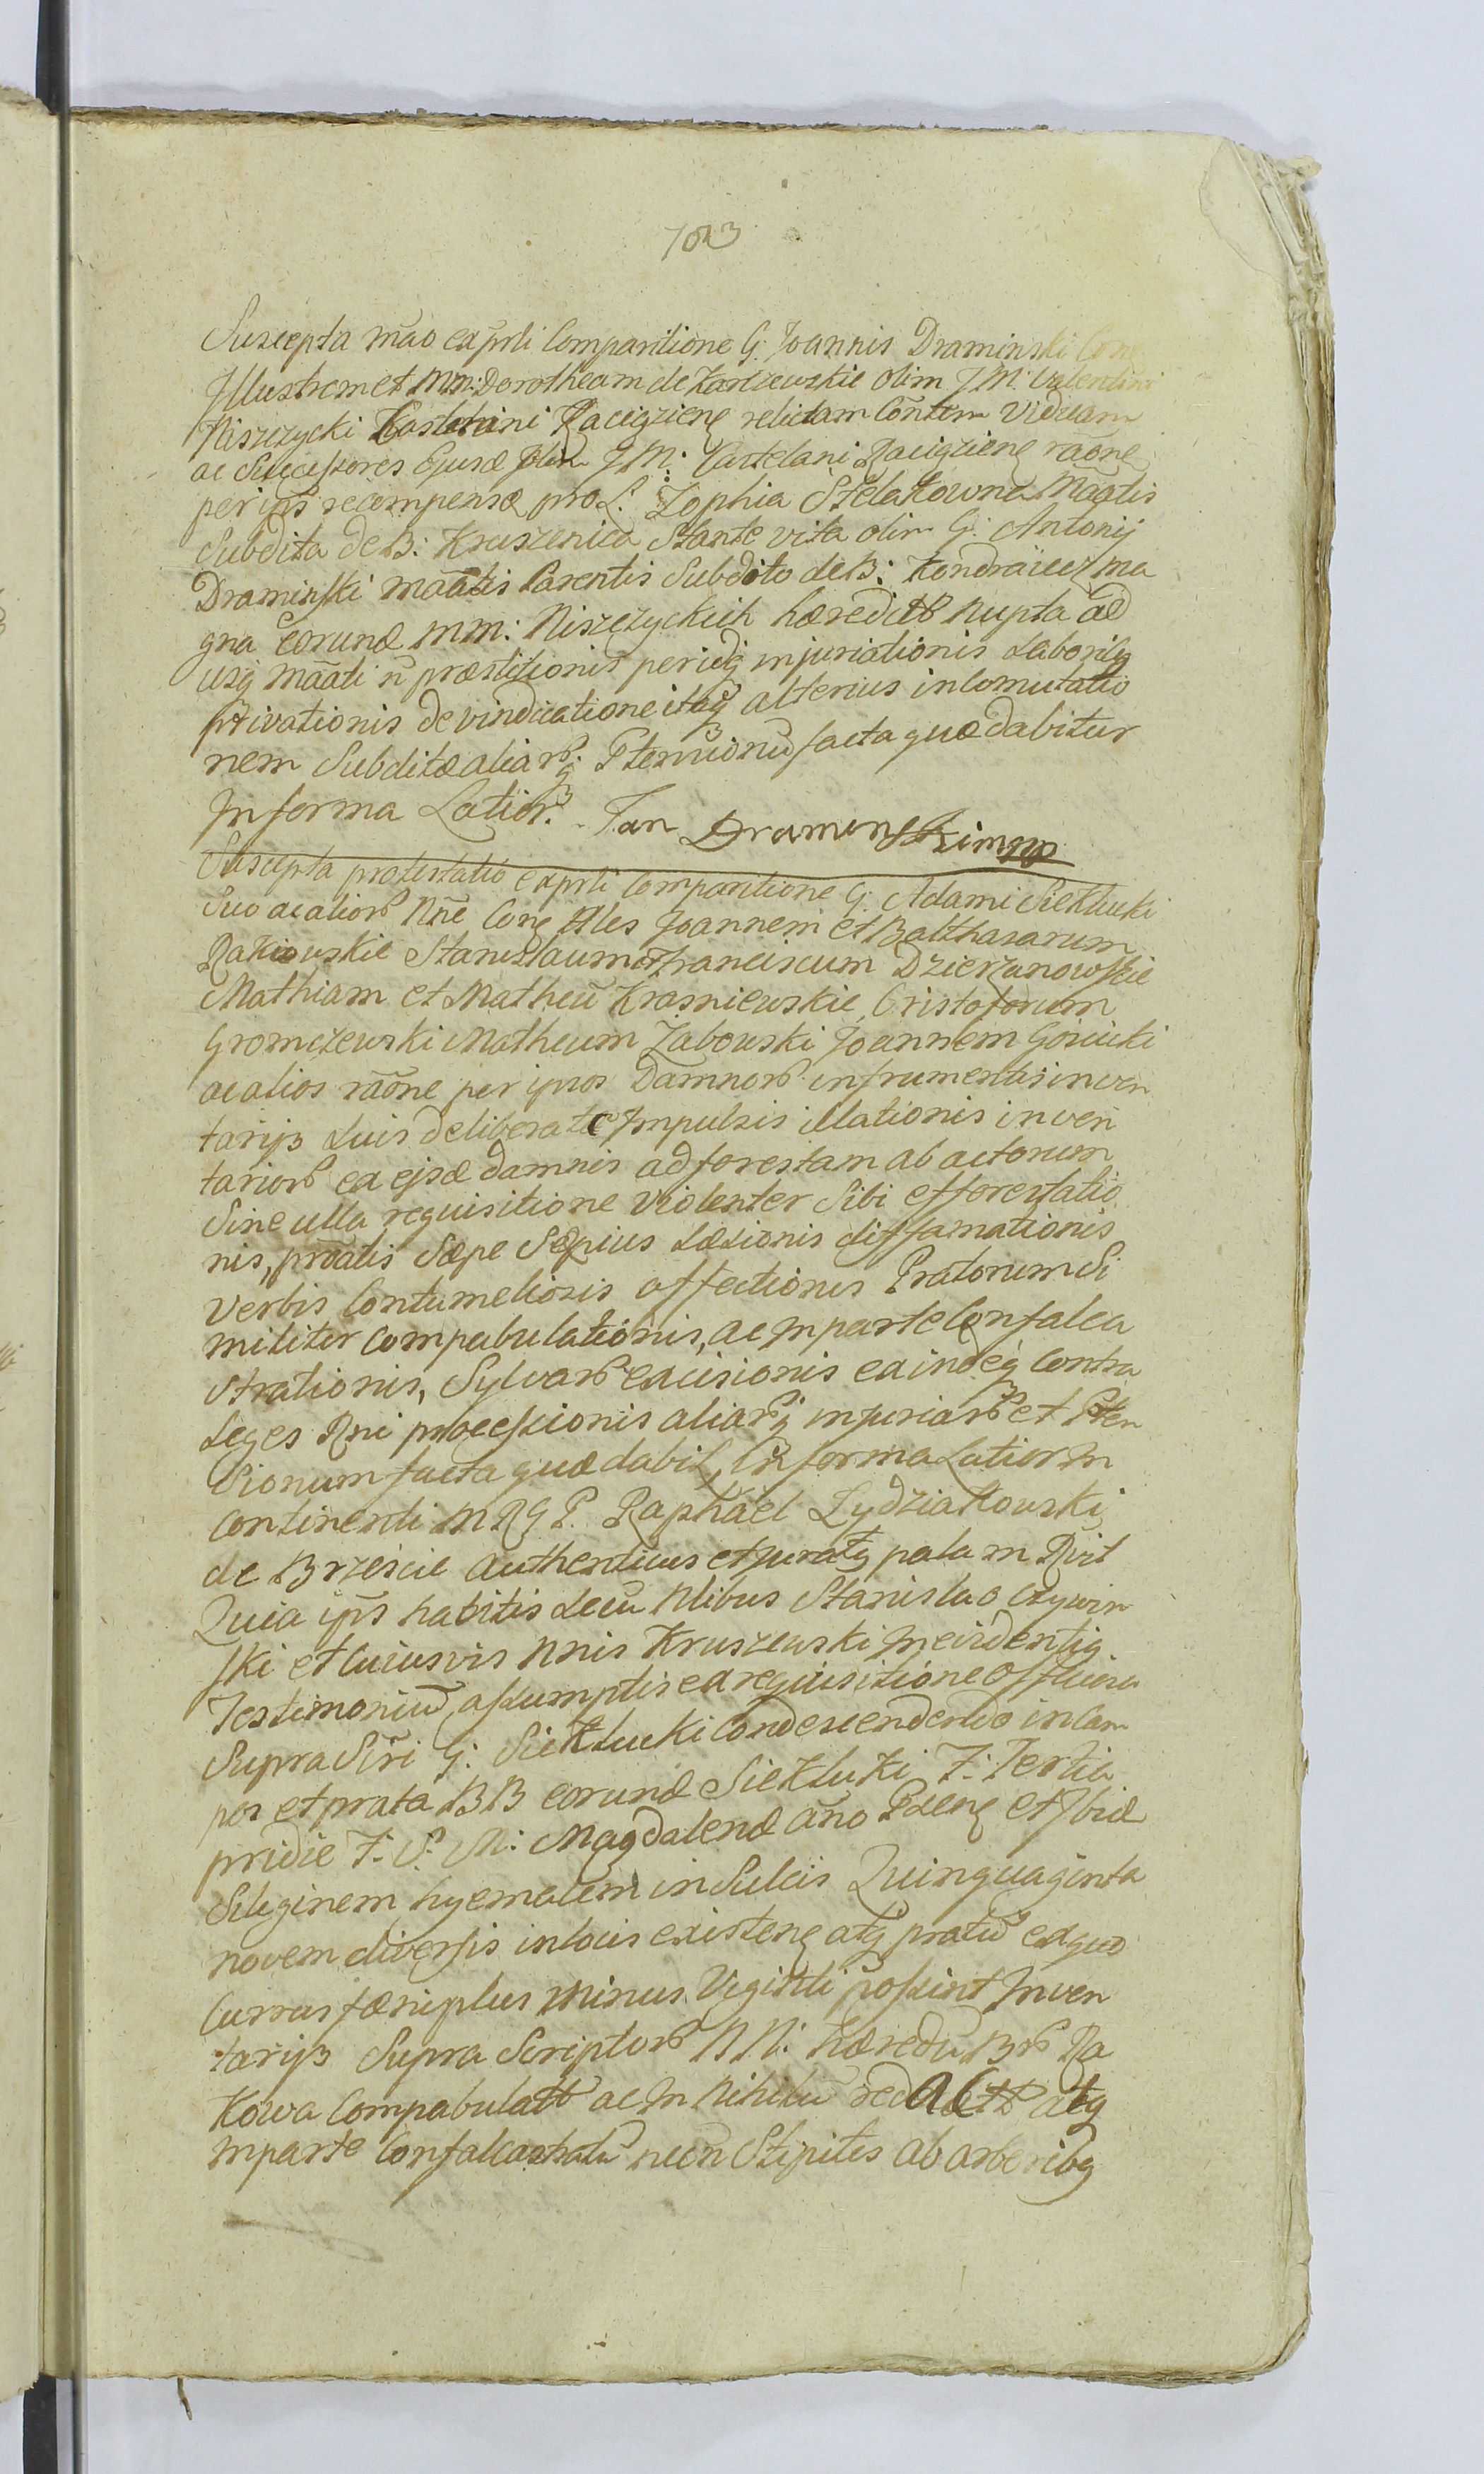 7023
Suscepta mão ex prli Comparitione G: Joannis Draminski Con
Illustrem et Mm: Dorotheam de Karczewskie olim J M: Valentini
Niszczycki Kastelani Raciązieng relictam Contem Viduam
ac Successores Ejusd olim J M: Castelani Raciązieng raõne
per ips recompensæ pro L: Zophia Stelakowna Mãatis
Subdita de B: Kraszenica Stante vita olim G: Antonij
Draminski mãatis Parentis Subdito de B: Kondraiec ma
gna eorund mm: Niszczyckich hæredit nupta ad
usq mãati ñ præstitionis peridq injurationis Laboribq
privationis de vindicatione itaq alterius in Comutatio
nem Subditæ aliarq Ptensionũ facta quæ dabitur
In forma Latiori. Jan Draminski mp
Suscepta protestatio ex prli Comparitione G: Adami Siekłucki
Suo ac aliorũ Nñe Cong Nles Joannem et Balthasarum
Rakowskie Stanislaum et Franciscum Dzierzanowskie
Mathiam et Matheũ Krasniewskie, Cristoforum
Gromczewski Matheum Zabowski Joannem Gosiicki
ac alios rãone per ipsos Damnorũ in frumentis inven
tarijs Suis deliberate Impulsis Illationis inven
tariorũ ex ejsd damnis ad forestam ab actorum
Sine ulla requisitione violenter Sibi efforestatio
nis, prõatis Sæpe Sæpius Læsionis diffamationis
Verbis Contumeliosis affectionis Pratorum Si
militer compabulationis, ac In parte Confalca
strationis, Sylvarũ excisionis ex indeq Contra
Leges Rni processionis aliarq injuriarũ et Pten
sionum facta quæ dabit, In forma Latiori In
Continenti M R G P. Raphael Lydziakowski
de Brzescie authenticus et juratq palam Rvit
Quia ips habitis Secũ Nlibus Stanislao Czywin
ski et cuiusvis Nnis Kruszewski In evidentiã
Testimoniũ, assumptis ex requisitione officiosa
Supra Sĩri G: Siekłucki Condescendendo in Cam
pos et prata BB eorund Siekłuki F: Tertia
pridie F: S: M: Magdalenæ año Pdeng et Ibid
Siliginem hyemalem in Sulcis Quinquaginta
novem diversis in locis existeng atq pratũ ex quo
Currus fæni plus minus Viginti possint Inven
tarijs Supra Scriptorũ NN: hæredũ Brũ Ra
kowa Compabulatũ ac In Nihilũ redactũ atq
In parte Confalcastratũ necñ Stipites ab arboribq